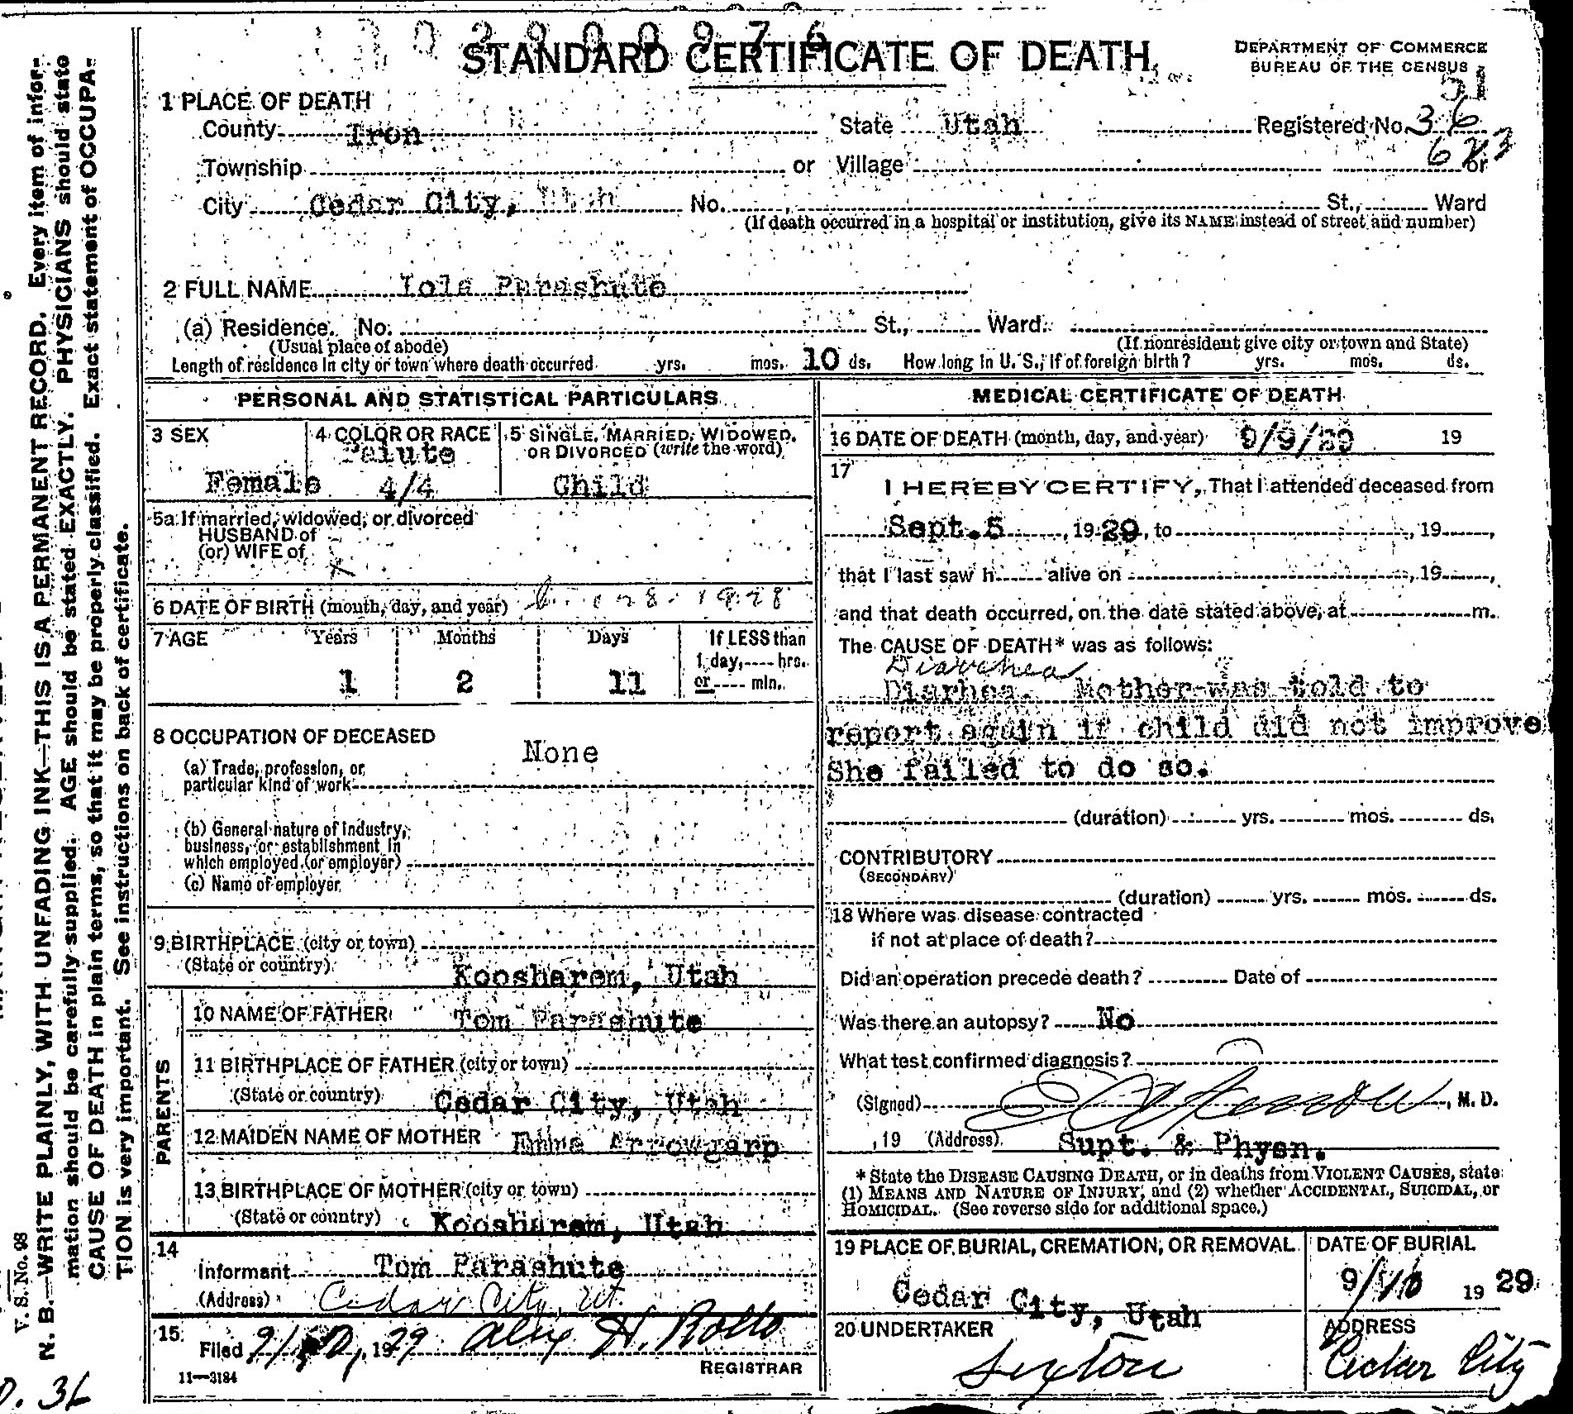 02900976
STANDARD CERTIFICATE OF DEATH
DEPARTMENT OF COMMERCE
BUREAU OF THE CENSUS
51
1 PLACE OF DEATH
County Iron State Utah Registered No. 36
623
Township or Village or
City Cedar City, Utah No. St., Ward
(If death occurred in a hospital or institution, give its NAME instead of street and number)
2 FULL NAME Iola Parashute
(a) Residence. No. St., Ward.
(Usual place of abode) (If nonresident give city or town and State)
Length of residence in city or town where death occurred yrs. mos. 10 ds. How long in U. S., if of foreign birth? yrs. mos. ds.
PERSONAL AND STATISTICAL PARTICULARS
3 SEX
Female
4 COLOR OR RACE
Paiute
4/4
5 SINGLE, MARRIED, WIDOWED,
OR DIVORCED (write the word)
Child
5a If married, widowed, or divorced
HUSBAND of
(or) WIFE of
x
6 DATE OF BIRTH (month, day, and year) 1928
7 AGE Years Months Days If LESS than
1 day, hrs.
or min.
1 2 11
8 OCCUPATION OF DECEASED
None
(a) Trade, profession, or
particular kind of work
(b) General nature of industry,
business, or establishment in
which employed (or employer)
(c) Name of employer
9 BIRTHPLACE (city or town)
(State or country) Koosharem, Utah
PARENTS
10 NAME OF FATHER Tom Parashute
11 BIRTHPLACE OF FATHER (city or town)
(State or country) Cedar City, Utah
12 MAIDEN NAME OF MOTHER Emma Arrowgarp
13 BIRTHPLACE OF MOTHER (city or town)
(State or country) Koosharem, Utah
14
Informant Tom Parashute
(Address) Cedar City, Ut.
15
Filed 9/10, 1929 Alex H. Rollo
REGISTRAR
11—3184
MEDICAL CERTIFICATE OF DEATH
16 DATE OF DEATH (month, day, and year) 9/9/29 19
17
I HEREBY CERTIFY, That I attended deceased from
Sept. 5, 1929, to , 19 ,
that I last saw h alive on , 19 ,
and that death occurred, on the date stated above, at m.
The CAUSE OF DEATH* was as follows:
Diarrhea
Diarhea. Mother was told to
report again if child did not improve
She failed to do so.
(duration) yrs. mos. ds.
CONTRIBUTORY
(SECONDARY)
(duration) yrs. mos. ds.
18 Where was disease contracted
if not at place of death?
Did an operation precede death? Date of
Was there an autopsy? No
What test confirmed diagnosis?
(Signed) , M. D.
, 19 (Address) Supt. & Physn.
* State the DISEASE CAUSING DEATH, or in deaths from VIOLENT CAUSES, state
(1) MEANS AND NATURE OF INJURY, and (2) whether ACCIDENTAL, SUICIDAL, or
HOMICIDAL. (See reverse side for additional space.)
19 PLACE OF BURIAL, CREMATION, OR REMOVAL
Cedar City, Utah
DATE OF BURIAL
9/10 1929
20 UNDERTAKER
Sexton
ADDRESS
Cedar City
V. S. No. 98
N. B.—WRITE PLAINLY, WITH UNFADING INK—THIS IS A PERMANENT RECORD. Every item of infor-
mation should be carefully supplied. AGE should be stated EXACTLY. PHYSICIANS should state
CAUSE OF DEATH in plain terms, so that it may be properly classified. Exact statement of OCCUPA-
TION is very important. See instructions on back of certificate.